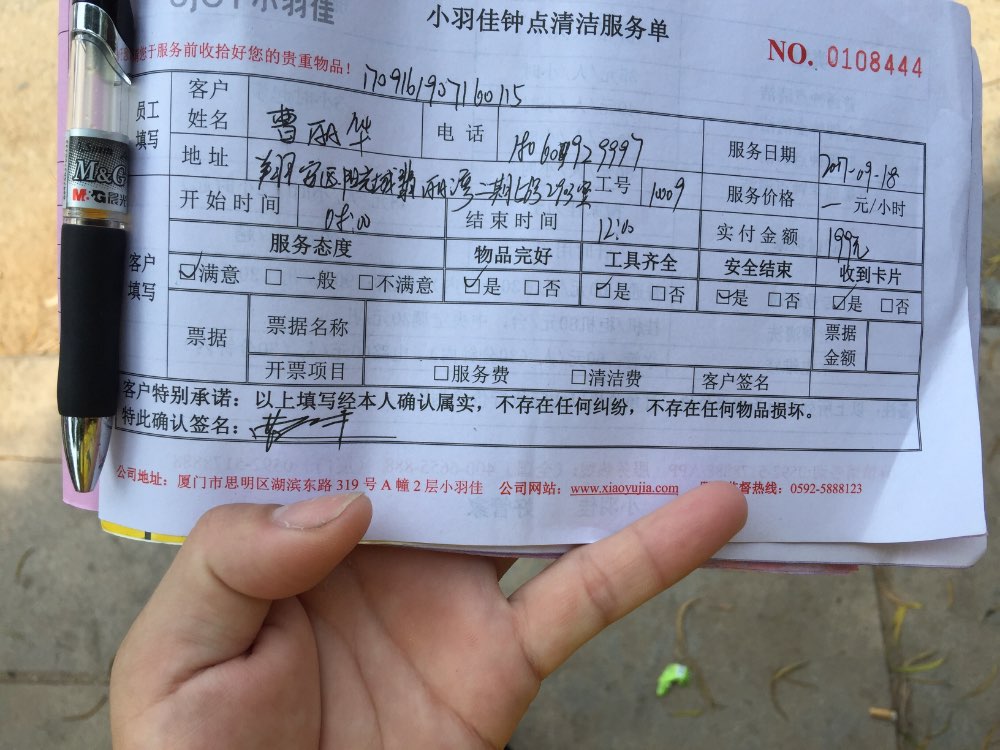 小羽佳
小羽佳钟点清洁服务单
NO. 0108444
您于服务前收拾好您的贵重物品！
员工填写 客户姓名 曹丽华 电话 服务日期 2017-09-18
地址 工号 1009 服务价格 一 元/小时
开始时间 08:00 结束时间 12:00 实付金额 199元
客户填写 服务态度 物品完好 工具齐全 安全结束 收到卡片
☑满意 □一般 □不满意 ☑是 □否 ☑是 □否 ☑是 □否 ☑是 □否
票据 票据名称 票据金额
开票项目 □服务费 □清洁费 客户签名
客户特别承诺：以上填写经本人确认属实，不存在任何纠纷，不存在任何物品损坏。
特此确认签名：
公司地址：厦门市思明区湖滨东路 319 号 A 幢 2 层小羽佳 公司网站：www.xiaoyujia.com 监督热线：0592-5888123
M&G
M&G 晨光